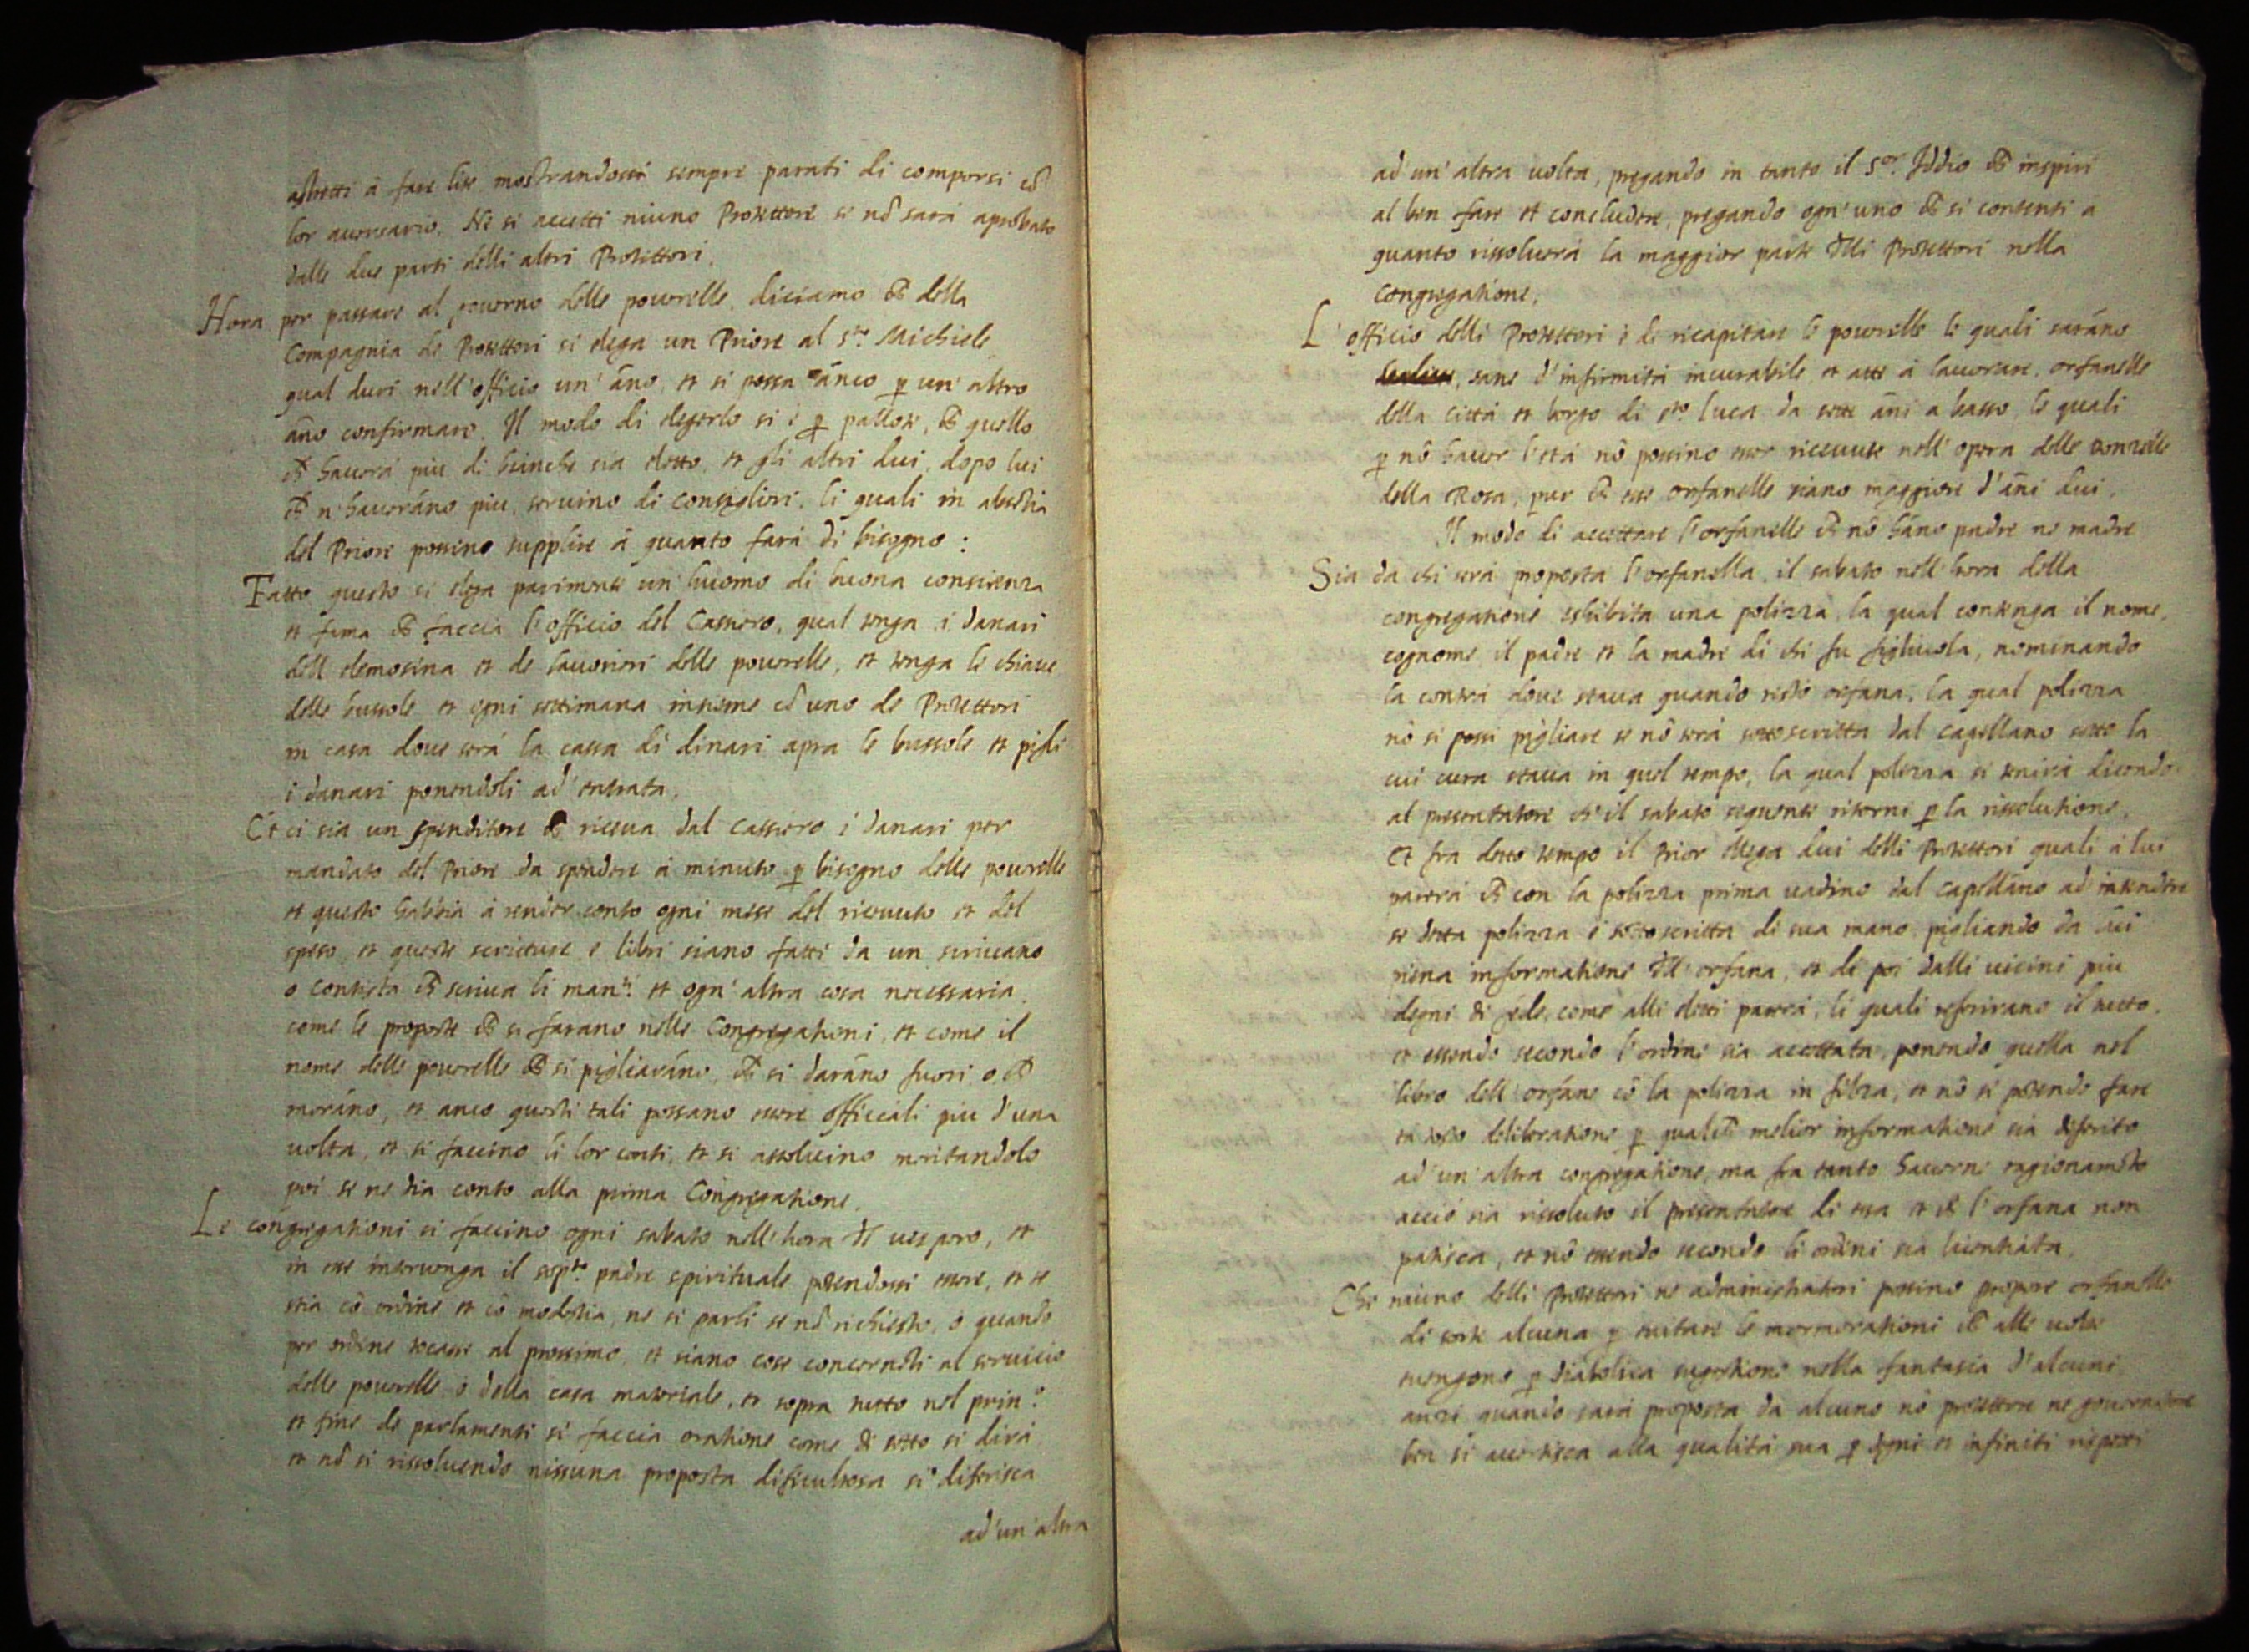 astretti à fare lite mostrandossi sempre parati di comporsi cō
lor auersario. Ne si accetti niuno Protettore se nō sarà aprobato
dalle due parti delli altri Protettori.
Hora per passare al gouerno delle pouerelle, diciamo ch̄ della
Compagnia de Protettori si elega un Priore al Sto. Michiele
qual duri nell'officio un' āno, et si possa āneo ꝑ un' altro
āno confirmare. Il modo di elegerlo si è ꝑ pallote, ch̄ quello
ch̄ hauerà piu di bianche sia eletto, et gli altri dui, dopo lui
ch̄ n'haueráno piu, seruino di consiglieri, li quali in absētia
del Priore possino supplire à quanto farà di bisogno:
Fatto questo si elega parimente un' huomo di buona conscienza
et fama ch̄ faccia l'officio del Cassiero, qual tenga i danari
dell elemosina et de lauorieri delle pouerelle, et tenga le chiaue
delle bussole et ogni settimana insieme cō uno de Protettori
in casa doue serà la cassa di dinari apra le bussole et pigli
i danari ponendoli ad' entrata.
Et ci sia un spenditore ch̄ riceua dal cassiero i danari per
mandato del Priore da spēdere à minuto ꝑ bisogno delle pouerelle
et questo habbia à render conto ogni mese del riceuuto et del
speso, et queste scritture e libri siano fatti da un scriuano
o contista ch̄ scriua li man.ti et ogn' altra cosa necessaria,
come le proposte ch̄ si farano nelle Congregationi, et come il
nome delle pouerelle ch̄ si pigliaráno, ch̄ si daráno fuori, o ch̄
moráno, et anco questi tali possano essere officiali piu d'una
uolta, et si faccino li lor conti, et si assoluino meritandolo
poi se ne dia conto alla prima Congregatione.
Le congregationi si faccino ogni sabato nell'hora di uespero, et
in esse interuenga il sop.to padre spirituale potendossi essere, et se
stia cō ordine et cō modestia, ne si parli se nō richiesto, ò quando
per ordine tocasse al prossimo, et siano cose concernēti al seruicio
delle pouerelle ò della casa materiale, et sopra tutto nel prin.o
et fine de parlamenti si faccia oratione come di sotto si dirà
et nō si rissoluendo nissuna proposta dificultosa si diferisca
ad' un' altra
ad un' altra uolta, pregando in tanto il S.or Iddio ch̄ inspiri
al ben fare et concludere, pregando ogn' uno ch̄ si contenti a
quanto rissoluerà la maggior parte d̄lli Protettori nella
congregatione.
L' officio delli Protettori è de ricapitare le pouerelle le quali saráno
sane d'infirmità incurabile, et atte à lauorare, orfanelle
della città et borgo di sto. luca da sette āni a basso, le quali
ꝑ nō hauer l'età nō possino esser riceuute nell' opera delle donzelle
della Rosa, pur ch̄ esse orfanelle siano maggiore d'āni dui.
Il modo di accettare l'orfanelle ch̄ nō háno padre ne madre
Sia da chi serà proposta l'orfanella, il sabato nell'hora della
congregatione eshibita una polizza, la qual contenga il nome,
cognome, il padre et la madre di chi fu figliuola, nominando
la contrà doue staua quando restò orfana, la qual polizza
nō si possi pigliare se nō serà sottoscritta dal capellano sotto la
cui cura staua in quel tempo, la qual polizza si tenirà dicendo
al presentatore ch'il sabato seguente ritorni ꝑ la rissolutione.
Et fra detto tempo il Prior ellega dui delli Protettori quali à lui
parerà ch̄ con la polizza prima uadino dal capelláno ad intendere
se detta polizza è sottoscritta di sua mano, pigliando da lui
piena informatione d̄ll' orfana, et di poi dalli uicini piu
degni di fede, come alli eletti parerà, li quali referirano il tutto,
et essendo secondo l'ordine sia accettata, ponendo quella nel
libro dell' orfane cō la polizza in filza, et nō si potendo fare
cosi tosto deliberatione ꝑ qualch̄ melior informatione sia diferito
ad' un' altra congregatione, ma fra tanto hauerne ragionamēto
acciò sia rissoluto il presentatore di essa et ch̄ l'orfana non
patisca, et nō essendo secondo li ordini sia licentiata.
Che niuno delli Protettori ne administratori possino propore orfanelle
di sorte alcuna ꝑ euitare le mormorationi ch̄ alle uolte
uengono ꝑ diabolica sugestione nella fantasia d'alcuni
anzi quando sarà proposta da alcuno nō protettore ne gouernatore
ben si auertisca alla qualità sua ꝑ degni et infiniti rispetti